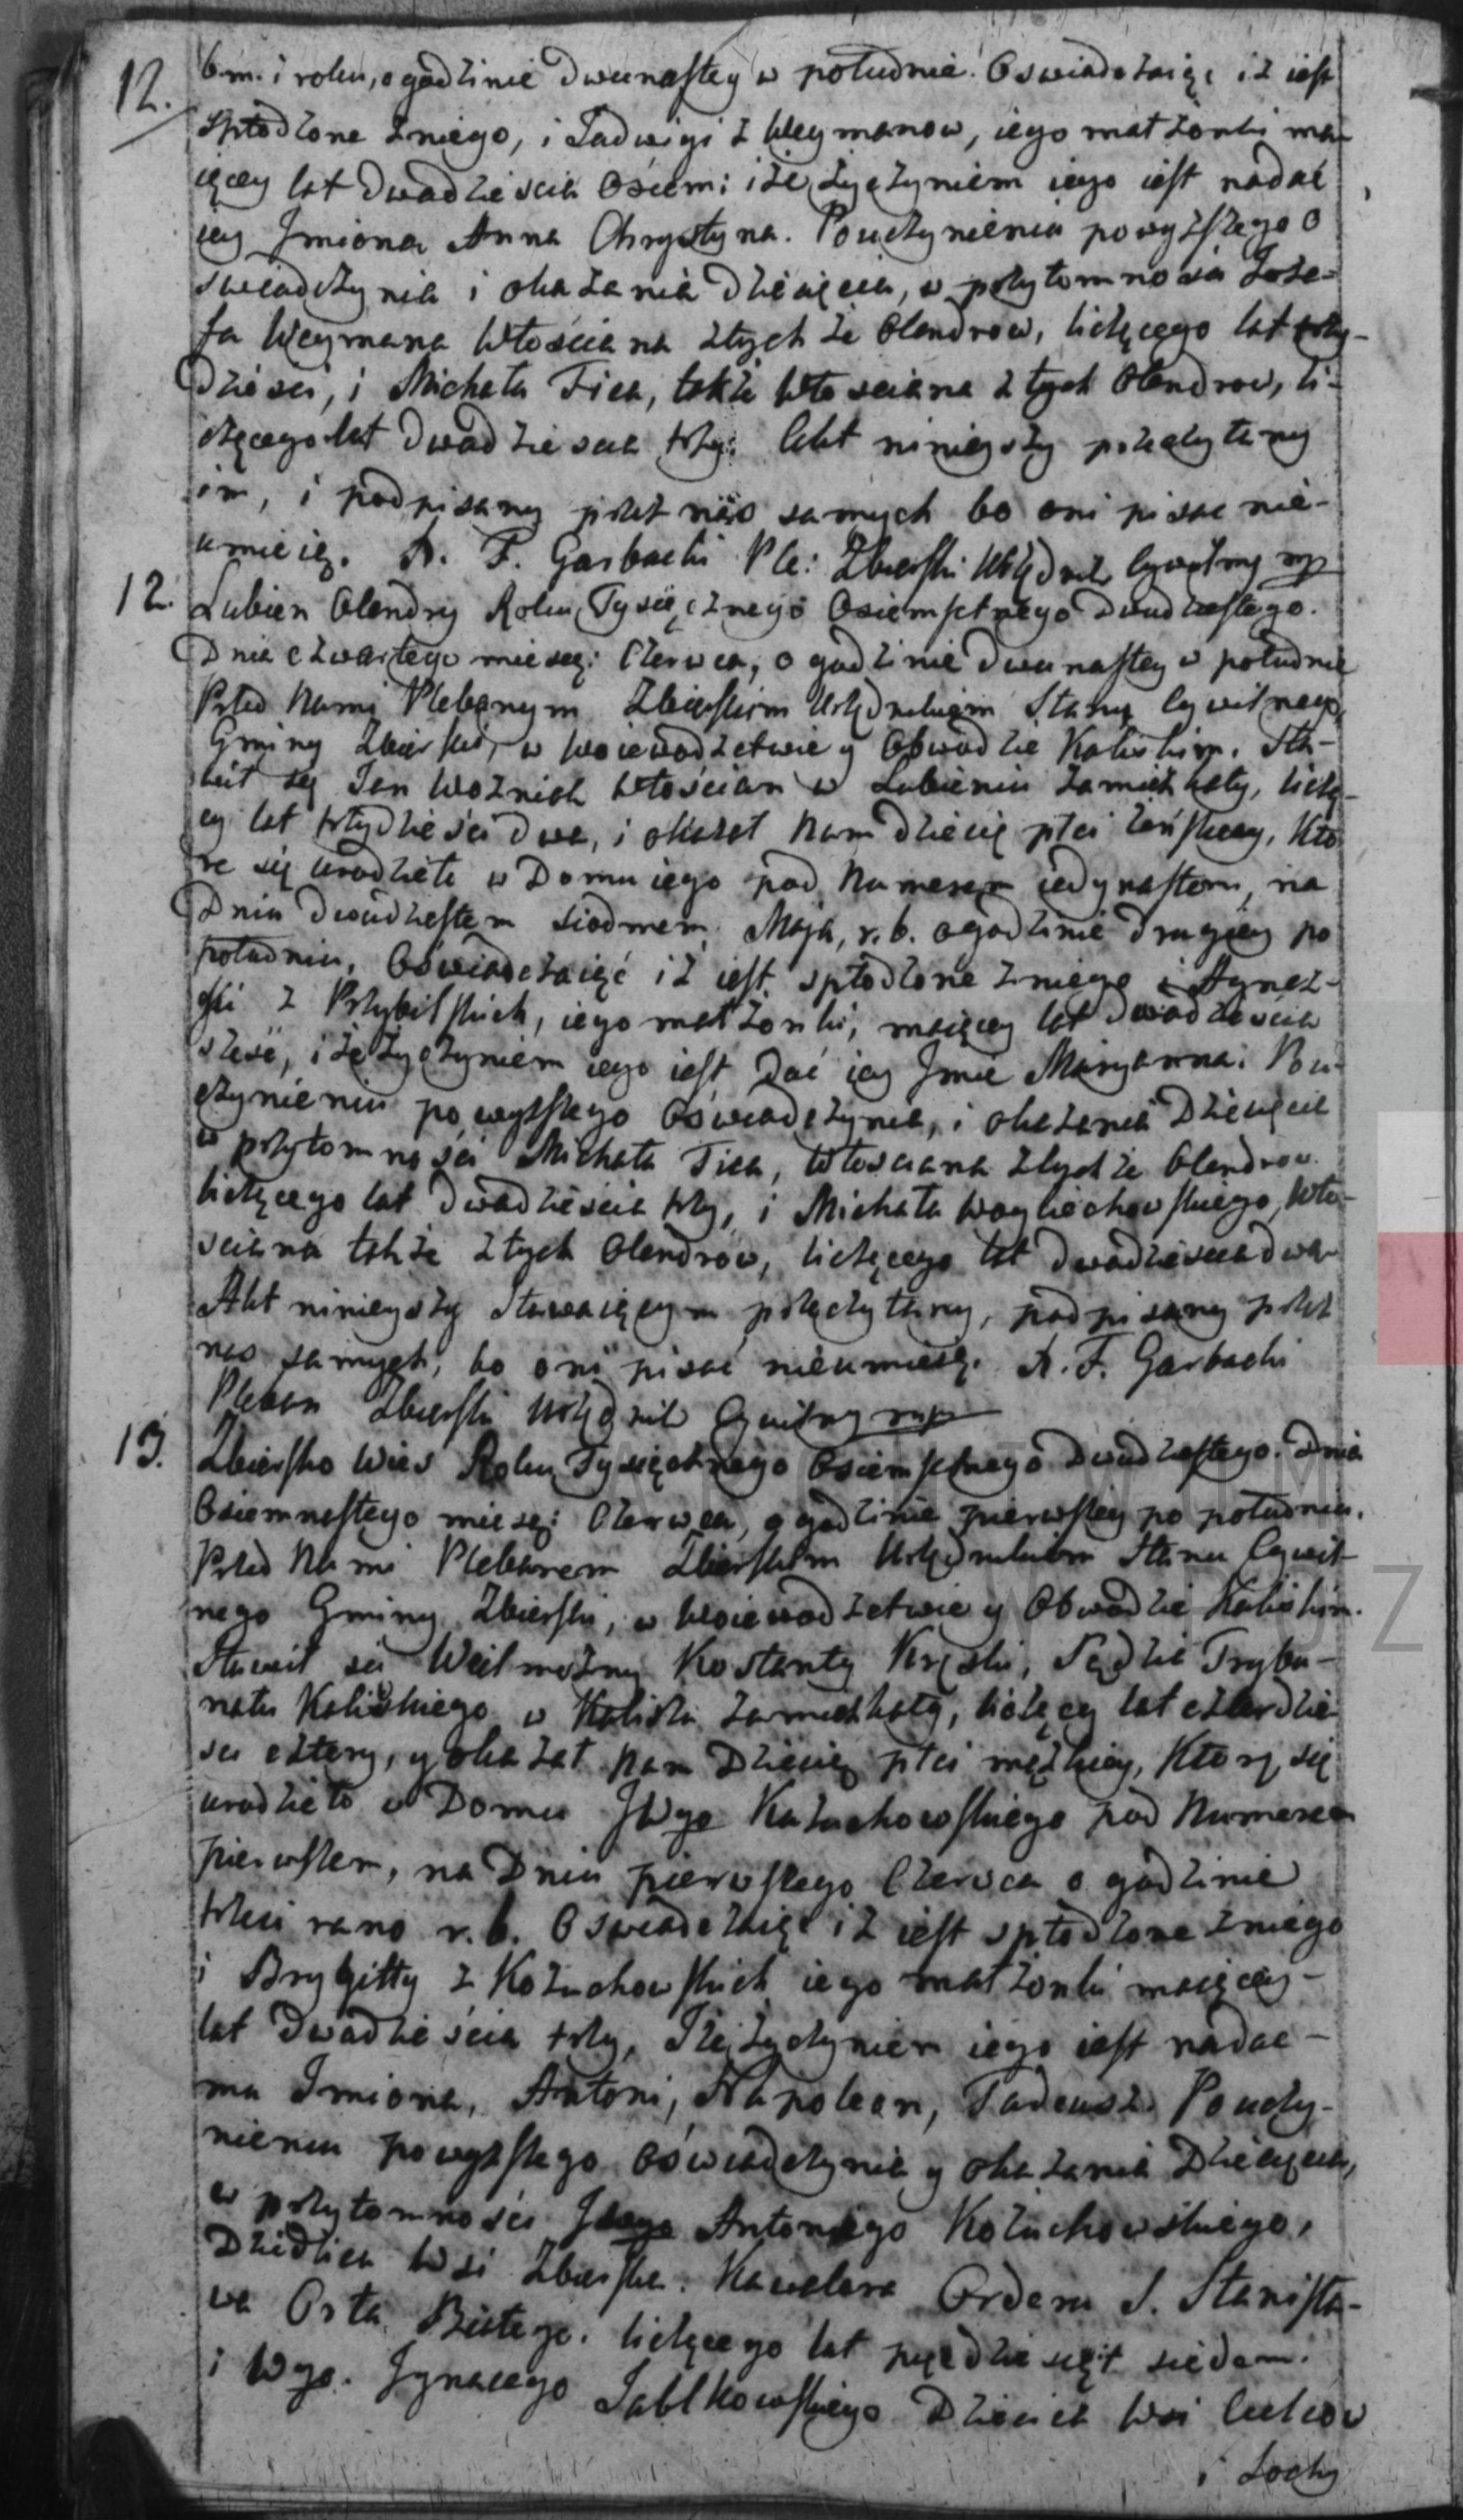 12.
b.m. i roku, o godzinie dwunastey w południe. Oswiadczaiąc iż iest
spłodzone z niego, i Jadwigi z Weymanow, iego małżonki ma-
iącey lat dwadziescia osiem; iże życzyniem iego iest nadać
iey Jmiona Anna Chrystyna. Pouczynieniu powyższego O
swiadczynia i okazania dziecięcia, w przytomnosci Joze-
fa Weymana Włościana z tych że Olendrow, liczącego lat trzy-
dziesci, i Michała Fica, także Włosciana z tych Olendrow, li-
czącego lat dwadziescia trzy. Akt ninieyszy przeczytany
im, i podpisany przez nas samych bo oni pisac nie-
umieią. X. F. Garbacki Ple: Zbierski Urzędnik Cywilny mp
12.
Lubien Olendry Roku Tysiącznego Osiemsetnego dwudziestego.
Dnia czwartego miesią: Czerwca, o godzinie dwunastey w południe
Przed Nami Plebanym Zbierskim Urzędnikiem Stanu Cywilnego,
Gminy Zbiersko, w Woiewodztwie y Obwodzie Kaliskim. Sta-
wił się Jan Wozniak Włościan w Lubieniu zamieszkały, liczą-
cy lat trzydziesci dwa, i okazał Nam dziecię płci żeńskiey, kto
re się urodziło w Domu iego pod Numerem iedynastem, na
Dniu dwudziestem siodmem Maja, r.b. o godzinie drugiey po
południu, Oświadczaiąć iż iest spłodzone z niego i Agnez-
ski z Przybilskich, iego małżonki, maiącey lat dwadziescia
szesc, iże życzyniem iego iest dać iey Jmie Maryanna. Pou-
czynieniu powyższego Oświadczynia, i okazania Dziecięcia
w przytomnosci Michała Fica, Włosciana z tych że Olendrow.
liczącego lat dwadziescia trzy, i Michała Woyciechowskiego, Wło-
sciana także z tych Olendrow, liczącego lat dwadziescia dwa
Akt ninieyszy stawaiącym przeczytany, podpisany przez
nas samych, bo oni pisać nieumieią. X. F. Garbacki
Pleban Zbierski Urzędnik Cywilny mp
13.
Zbiersko Wies Roku Tysiącznego Osiemsetnego dwudziestego. Dnia
Osiemnastego miesią: Czerwca, o godzinie pierwszey po południu.
Przed Nami Plebanem Zbierskim Urzędnikiem Stanu Cywil-
nego Gminy Zbierski, w Woiewodztwie y Obwodzie Kaliskim.
Stawił się Wielmożny Kostanty Kręski, Sędzia Trybu-
nału Kaliskiego w Kaliszu zamieszkały, liczący lat czterdzie
sci cztery, y okazał Nam Dziecię płci męzkiey, ktorę się
urodziło w Domu JWgo Kożuchowskiego pod Numerem
pierwszem, na Dniu pierwszego Czerwca o godzinie
trzeci rano r.b. Oswiadczaiąc iż iest spłodzone z niego
i Brygitty z Kożuchowskich iego małżonki maiącey-
lat dwadzieścia trzy, Iże życzyniem iego iest nadac-
mu Jmiona, Antoni, Napoleon, Tadeusz. Pouczy-
nieniu powyższego Oświadczynia y okazania Dziecięcia,
w przytomnosci JWgo Antoniego Kożuchowskiego,
Dziedzica Wsi Zbierska. Kawalera Orderu S. Stanisła-
wa Orła Białego. liczącego lat pięcdziesięt siedem.
i Wgo. Jgnacego Jabłkowskiego Dziedzica Wsi
i